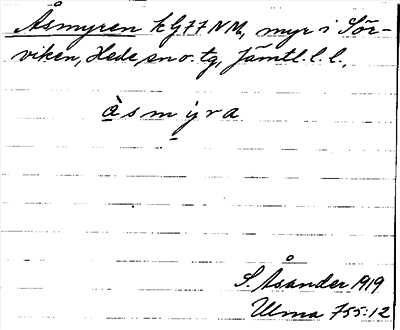 Åsmyren k G77NM, myr i Sör-
viken, Hede, sn o. tg, Jämtl. l. l.,
àsmýra
S. Åsander 1919
Ulma 755:12